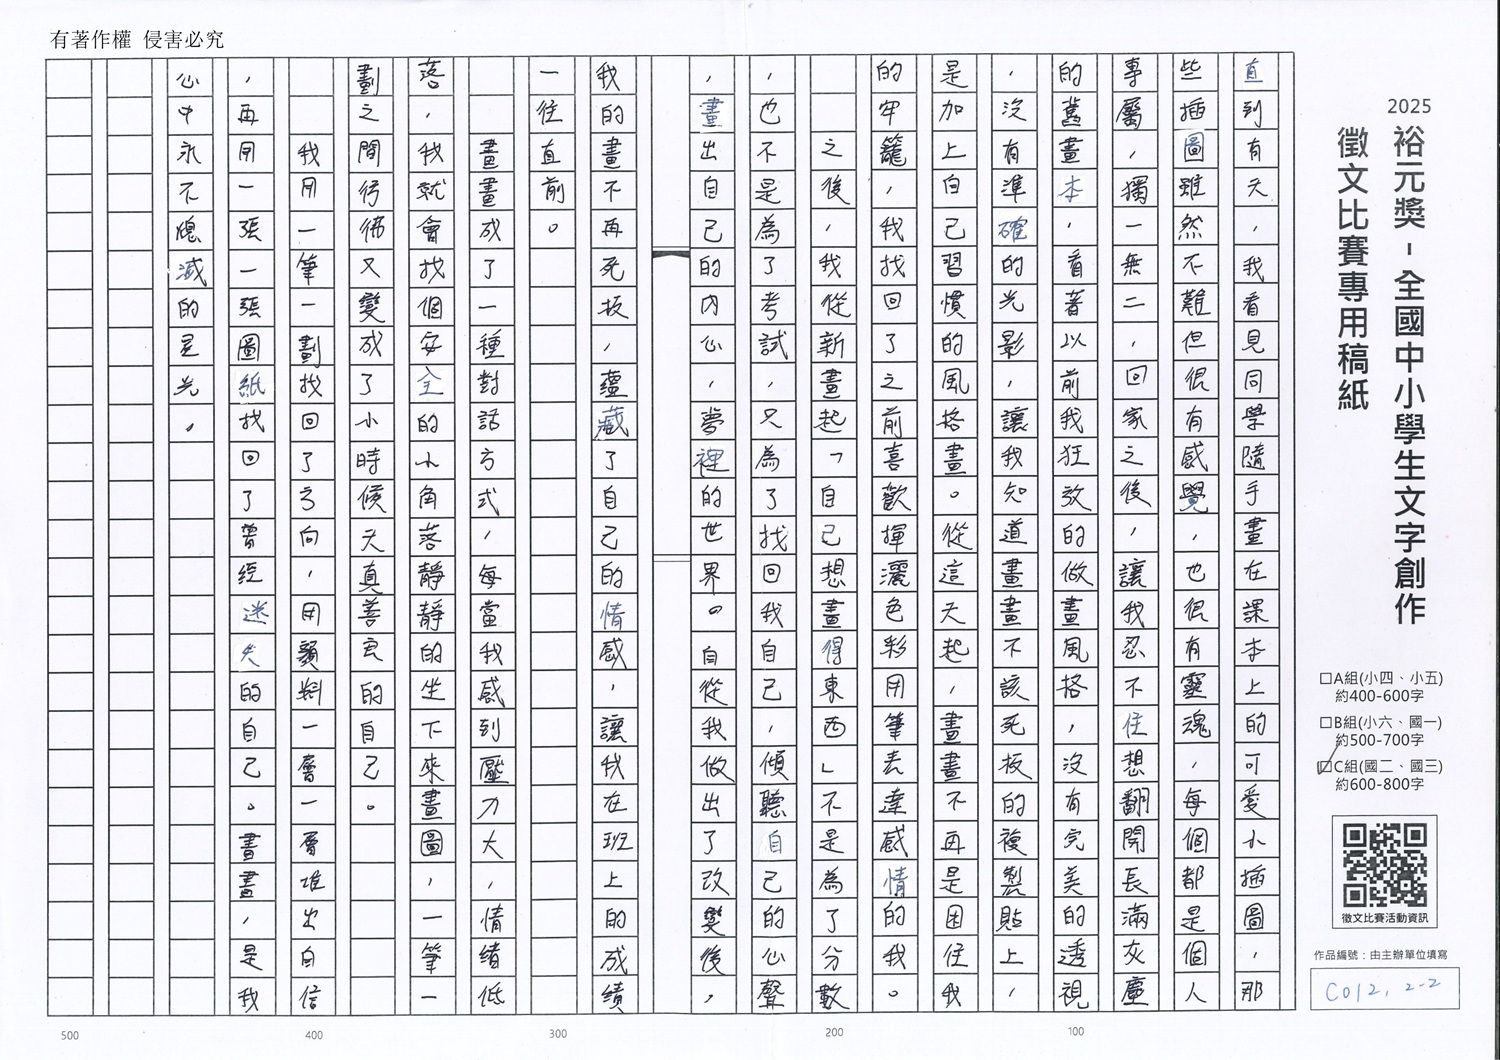 有著作權 侵害必究
2025
裕元獎-全國中小學生文字創作
徵文比賽專用稿紙
□A組(小四、小五)
約400-600字
□B組(小六、國一)
約500-700字
□C組(國二、國三)
約600-800字
徵文比賽活動資訊
作品編號：由主辦單位填寫
C012, 2-2
直到有天，我看見同學隨手畫在課本上的可愛小插圖，那
些插圖雖然不難但很有感覺，也很有靈魂，每個都是個人
專屬，獨一無二，回家之後，讓我忍不住想翻開長滿灰塵
的舊畫本，看著以前我狂放的做畫風格，沒有完美的透視
，沒有準確的光影，讓我知道畫畫不該死板的複製貼上，
是加上自己習慣的風格畫。從這天起，畫畫不再是困住我
的牢籠，我找回了之前喜歡揮灑色彩用筆表達感情的我。
之後，我從新畫起「自己想畫得東西」不是為了分數
，也不是為了考試，只為了找回我自己，傾聽自己的心聲
，畫出自己的內心，夢裡的世界。自從我做出了改變後，
我的畫不再死板，蘊藏了自己的情感，讓我在班上的成績
一往直前。
畫畫成了一種對話方式，每當我感到壓力大，情緒低
落，我就會找個安全的小角落靜靜的坐下來畫圖，一筆一
劃之間彷彿又變成了小時候天真善良的自己。
我用一筆一劃找回了方向，用顏料一層一層堆出自信
，再用一張一張圖紙找回了曾經迷失的自己。畫畫，是我
心中永不熄滅的星光。
100
200
300
400
500